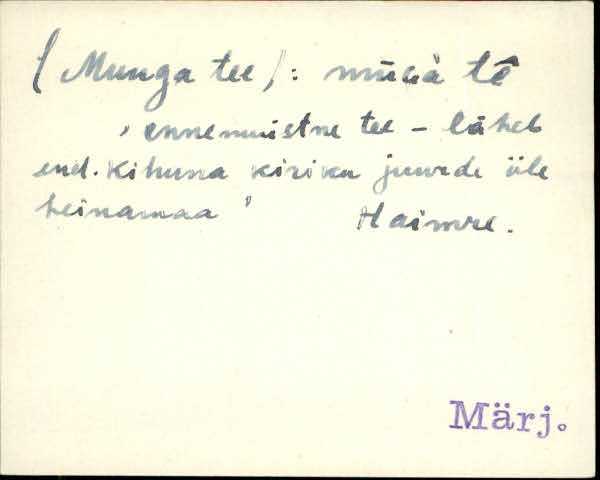 (Munga tee): tē
' ennemuistne tee - läheb
end. Kihuna kiriku juurde üle
heinamaa ' Haimre.
Märj.